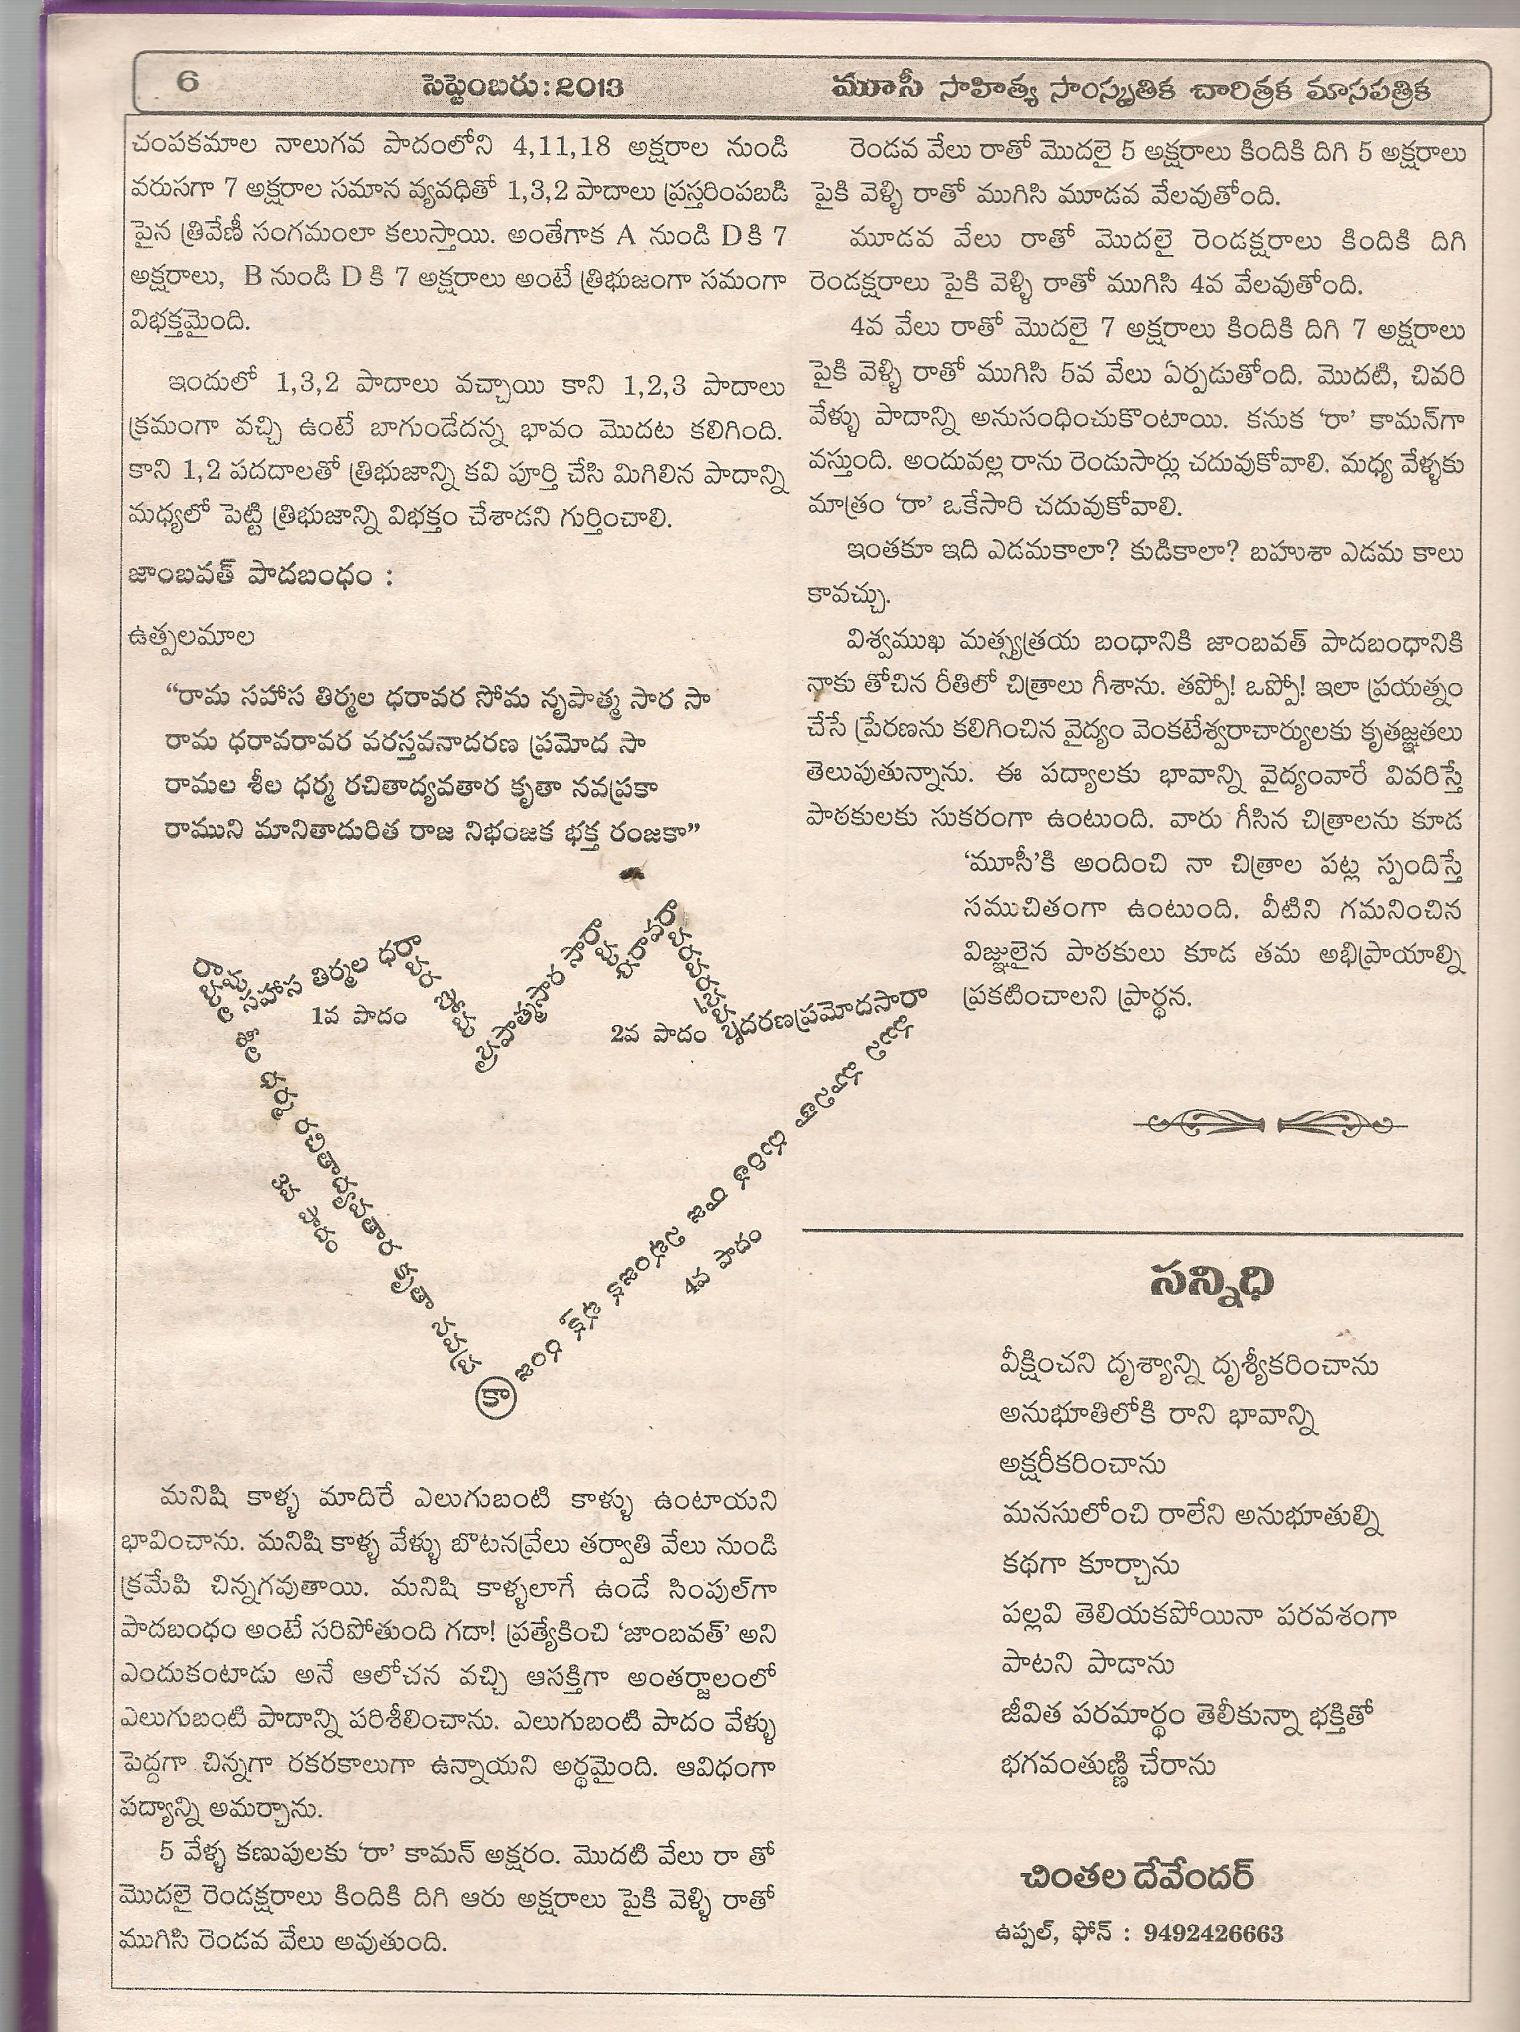 6
సెప్టెంబరు:2013
మూసీ సాహిత్య సాంస్కృతిక చారిత్రక మాసపత్రిక
చంపకమాల నాలుగవ పాదంలోని 4,11,18 అక్షరాల నుండి
వరుసగా 7 అక్షరాల సమాన వ్యవధితో 1,3,2 పాదాలు ప్రస్తరింపబడి
పైన త్రివేణీ సంగమంలా కలుస్తాయి. అంతేగాక A నుండి D కి 7
అక్షరాలు, B నుండి D కి 7 అక్షరాలు అంటే త్రిభుజంగా సమంగా
విభక్తమైంది.
ఇందులో 1,3,2 పాదాలు వచ్చాయి కాని 1,2,3 పాదాలు
క్రమంగా వచ్చి ఉంటే బాగుండేదన్న భావం మొదట కలిగింది.
కాని 1,2 పదదాలతో త్రిభుజాన్ని కవి పూర్తి చేసి మిగిలిన పాదాన్ని
మధ్యలో పెట్టి త్రిభుజాన్ని విభక్తం చేశాడని గుర్తించాలి.
జాంబవత్ పాదబంధం :
ఉత్పలమాల
“రామ సహాస తిర్మల ధరావర సోమ నృపాత్మ సార సా
రామ ధరావరావర వరస్తవనాదరణ ప్రమోద సా
రామల శీల ధర్మ రచితాద్యవతార కృతా నవప్రకా
రాముని మానితాదురిత రాజ నిభంజక భక్త రంజకా”
సహాస తిర్మల ధరా
1వ పాదం
2వ పాదం
దరణప్రమోదసారా
ధర్మ రచితాద్యవతార కృతా నవప్ర
3వ పాదం
4వ పాదం
కా
మనిషి కాళ్ళ మాదిరే ఎలుగుబంటి కాళ్ళు ఉంటాయని
భావించాను. మనిషి కాళ్ళ వేళ్ళు బొటనవ్రేలు తర్వాతి వేలు నుండి
క్రమేపి చిన్నగవుతాయి. మనిషి కాళ్ళలాగే ఉండే సింపుల్‌గా
పాదబంధం అంటే సరిపోతుంది గదా! ప్రత్యేకించి ‘జాంబవత్’ అని
ఎందుకంటాడు అనే ఆలోచన వచ్చి ఆసక్తిగా అంతర్జాలంలో
ఎలుగుబంటి పాదాన్ని పరిశీలించాను. ఎలుగుబంటి పాదం వేళ్ళు
పెద్దగా చిన్నగా రకరకాలుగా ఉన్నాయని అర్థమైంది. ఆవిధంగా
పద్యాన్ని అమర్చాను.
5 వేళ్ళ కణుపులకు ‘రా’ కామన్ అక్షరం. మొదటి వేలు రా తో
మొదలై రెండక్షరాలు కిందికి దిగి ఆరు అక్షరాలు పైకి వెళ్ళి రాతో
ముగిసి రెండవ వేలు అవుతుంది.
రెండవ వేలు రాతో మొదలై 5 అక్షరాలు కిందికి దిగి 5 అక్షరాలు
పైకి వెళ్ళి రాతో ముగిసి మూడవ వేలవుతోంది.
మూడవ వేలు రాతో మొదలై రెండక్షరాలు కిందికి దిగి
రెండక్షరాలు పైకి వెళ్ళి రాతో ముగిసి 4వ వేలవుతోంది.
4వ వేలు రాతో మొదలై 7 అక్షరాలు కిందికి దిగి 7 అక్షరాలు
పైకి వెళ్ళి రాతో ముగిసి 5వ వేలు ఏర్పడుతోంది. మొదటి, చివరి
వేళ్ళు పాదాన్ని అనుసంధించుకొంటాయి. కనుక ‘రా’ కామన్‌గా
వస్తుంది. అందువల్ల రాను రెండుసార్లు చదువుకోవాలి. మధ్య వేళ్ళకు
మాత్రం ‘రా’ ఒకేసారి చదువుకోవాలి.
ఇంతకూ ఇది ఎడమకాలా? కుడికాలా? బహుశా ఎడమ కాలు
కావచ్చు.
విశ్వముఖ మత్స్యత్రయ బంధానికి జాంబవత్ పాదబంధానికి
నాకు తోచిన రీతిలో చిత్రాలు గీశాను. తప్పో! ఒప్పో! ఇలా ప్రయత్నం
చేసే ప్రేరణను కలిగించిన వైద్యం వెంకటేశ్వరాచార్యులకు కృతజ్ఞతలు
తెలుపుతున్నాను. ఈ పద్యాలకు భావాన్ని వైద్యంవారే వివరిస్తే
పాఠకులకు సుకరంగా ఉంటుంది. వారు గీసిన చిత్రాలను కూడ
‘మూసీ’కి అందించి నా చిత్రాల పట్ల స్పందిస్తే
సముచితంగా ఉంటుంది. వీటిని గమనించిన
విజ్ఞులైన పాఠకులు కూడ తమ అభిప్రాయాల్ని
ప్రకటించాలని ప్రార్థన.
సన్నిధి
వీక్షించని దృశ్యాన్ని దృశ్యీకరించాను
అనుభూతిలోకి రాని భావాన్ని
అక్షరీకరించాను
మనసులోంచి రాలేని అనుభూతుల్ని
కథగా కూర్చాను
పల్లవి తెలియకపోయినా పరవశంగా
పాటని పాడాను
జీవిత పరమార్థం తెలీకున్నా భక్తితో
భగవంతుణ్ణి చేరాను
చింతల దేవేందర్
ఉప్పల్, ఫోన్ : 9492426663